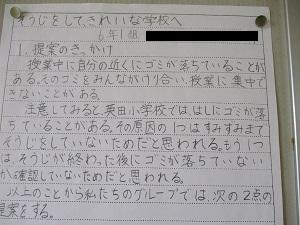 そうじをしてきれいな学校へ
6年1組
1.提案のきっかけ
授業中に自分の近くにゴミが落ちていることが
ある。そのゴミをみんながけり合い、授業に集中で
きないことがある。
注意してみると、英田小学校では、はしにゴミが落
ちていることがある。その原因の1つはすみずみまで
そうじをしていないためだと思われる。もう1つ
は、そうじが終わった後にゴミが落ちていない
か確認していないためだと思われる。
以上のことから私たちのグループでは、次の2点の
提案をする。